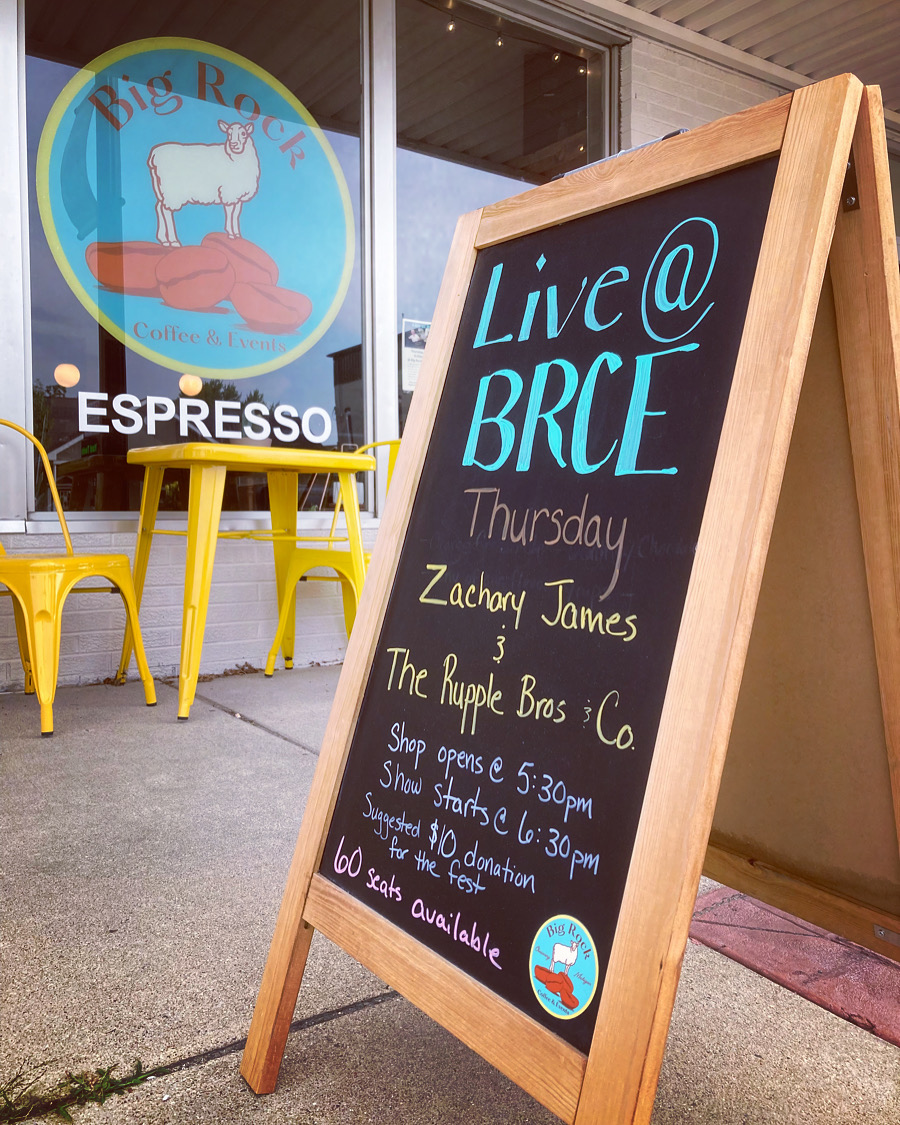 Big Rock
Coffee & Events
ESPRESSO
Live @
BRCE
Thursday
Zachary James
&
The Rupple Bros & Co.
Shop opens @ 5:30pm
Show starts @ 6:30pm
Suggested $10 donation
for the fest
60 seats available
Big Rock
Coffee & Events